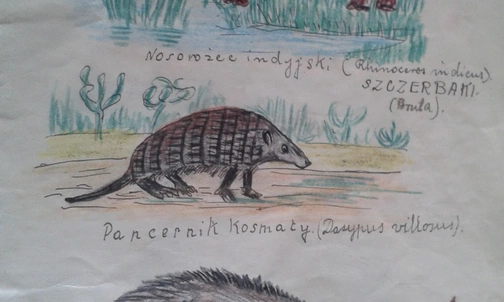 Nosorożec indyjski (Rhinoceros indicus)
SZCZERBAKI.
(Bruta).
Pancernik Kosmaty. (Dasypus villosus).